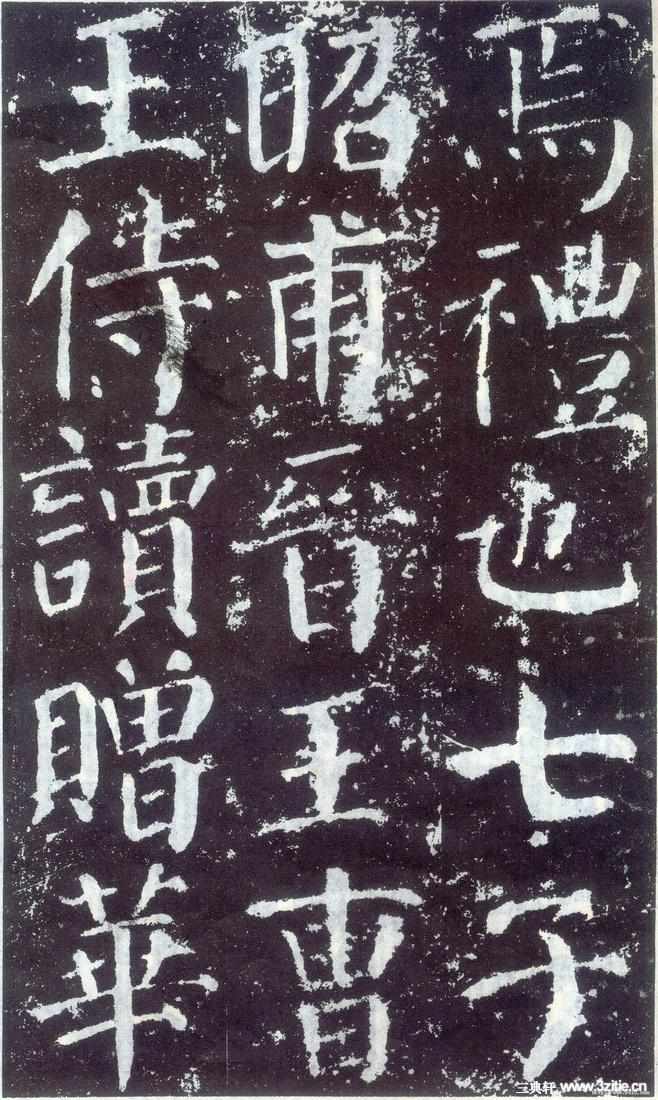 焉禮也七子
昭甫晉王曹
王侍讀贈華
三典轩 www.3zitie.cn